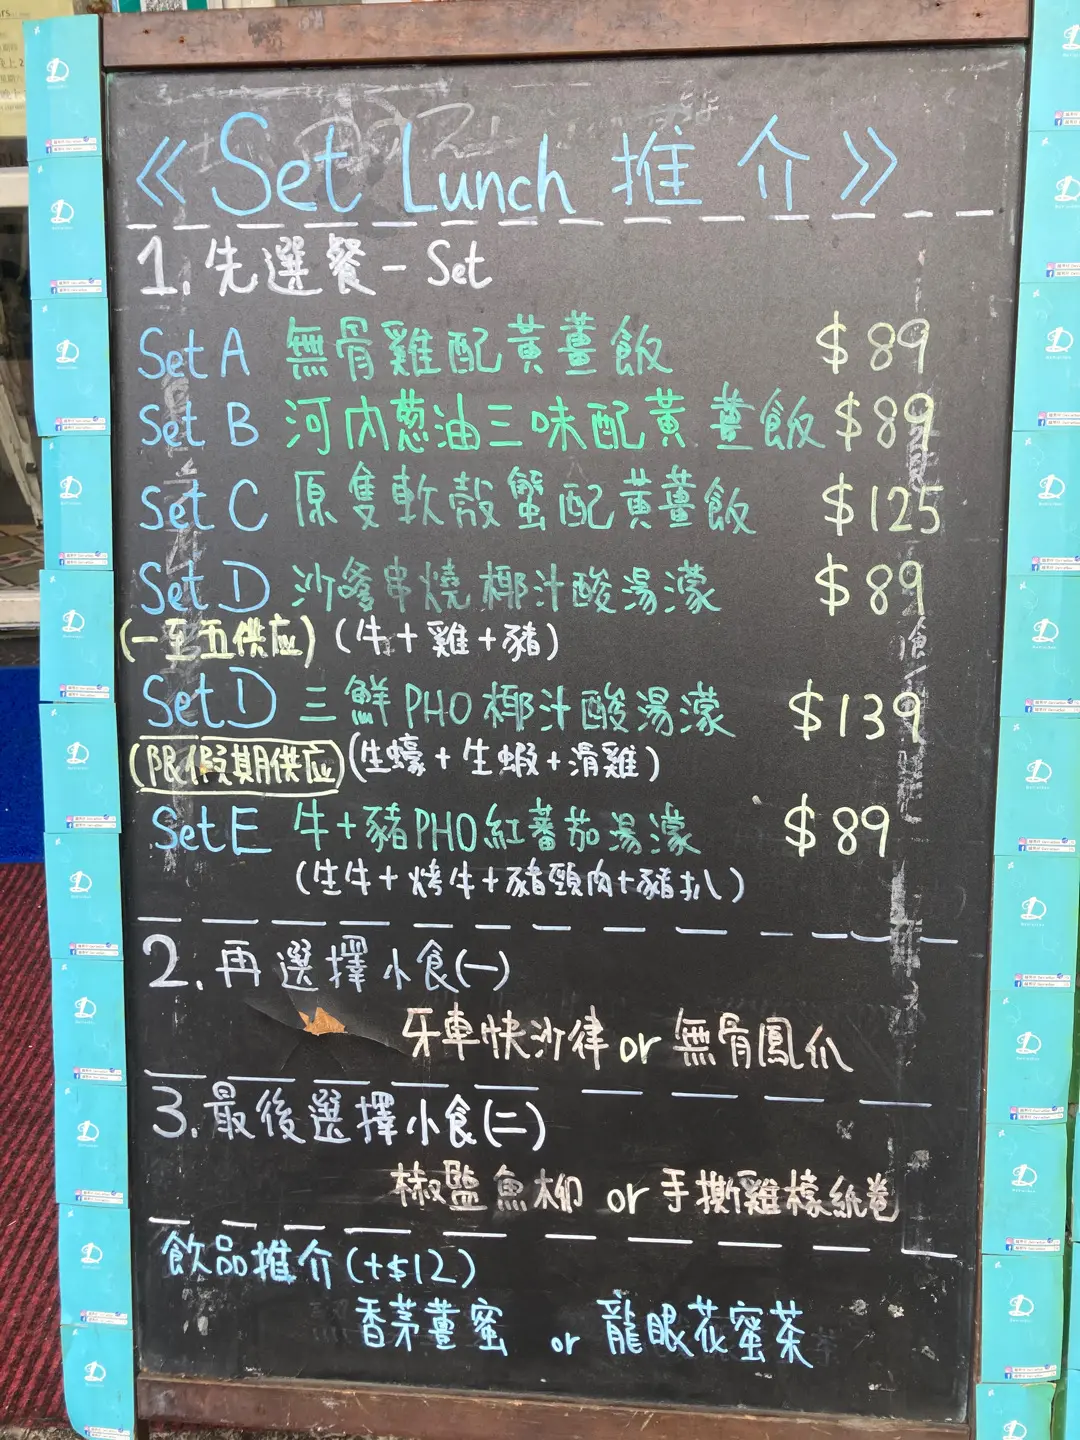 《Set Lunch 推介》
1. 先選餐 - Set
Set A 無骨雞配黃薑飯 $89
Set B 河內蔥油三味配黃薑飯 $89
Set C 原隻軟殼蟹配黃薑飯 $125
Set D 沙爹串燒椰汁酸湯濛 $89
(一至五供应) (牛+雞+豬)
Set D 三鮮PHO椰汁酸湯濛 $139
(限假期供应) (生蠔+生蝦+滑雞)
Set E 牛+豬PHO紅蕃茄湯濛 $89
(生牛+烤牛+豬頸肉+豬扒)
2. 再選擇小食(一)
牙車快沙律 or 無骨鳳爪
3. 最後選擇小食(二)
椒鹽魚柳 or 手撕雞檬紙卷
飲品推介 (+$12)
香茅薑蜜 or 龍眼花蜜茶